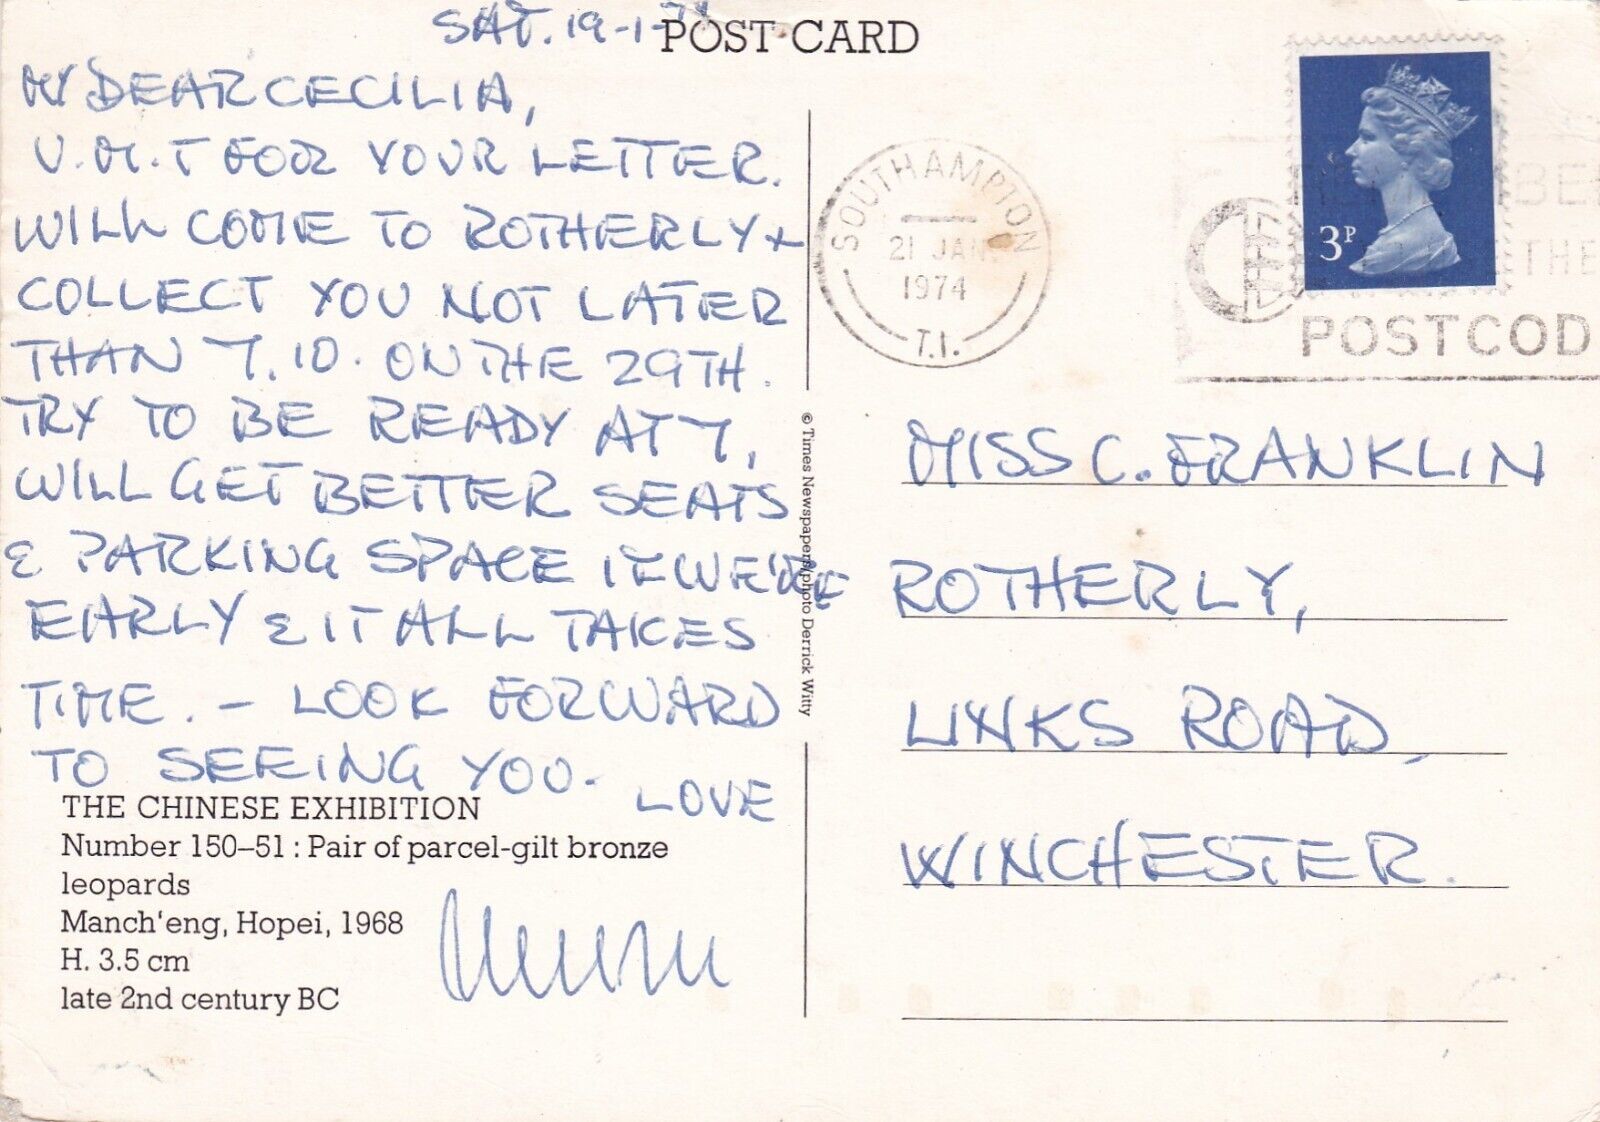 SAT. 19-1-74
POST CARD
MY DEAR CECILIA,
V.M.T FOR YOUR LETTER.
WILL COME TO ROTHERLY +
COLLECT YOU NOT LATER
THAN 7.10. ON THE 29TH.
TRY TO BE READY AT 7,
WILL GET BETTER SEATS
& PARKING SPACE IF WE'RE
EARLY & IT ALL TAKES
TIME. - LOOK FORWARD
TO SEEING YOU. LOVE
THE CHINESE EXHIBITION
Number 150–51 : Pair of parcel-gilt bronze
leopards
Manch'eng, Hopei, 1968
H. 3.5 cm
late 2nd century BC
© Times Newspapers/photo Derrick Witty
SOUTHAMPTON
21 JAN
1974
T.I.
3P
THE
POSTCOD
MISS C. FRANKLIN
ROTHERLY,
LINKS ROAD,
WINCHESTER.